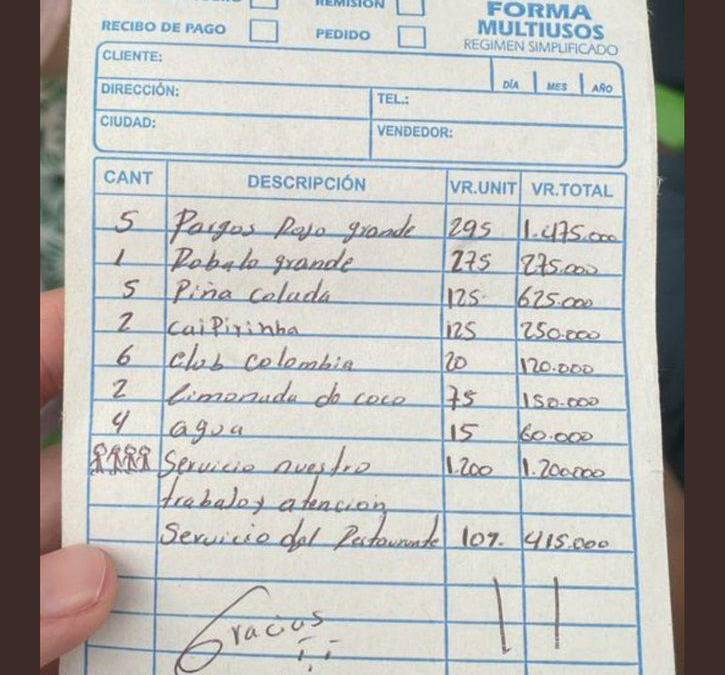 REMISIÓN
RECIBO DE PAGO
PEDIDO
FORMA
MULTIUSOS
REGIMEN SIMPLIFICADO
CLIENTE:
DÍA MES AÑO
DIRECCIÓN:
TEL.:
CIUDAD:
VENDEDOR:
CANT DESCRIPCIÓN VR.UNIT VR.TOTAL
5 Pargos Rojo grande 295 1.475.000
1 Robalo grande 275 275.000
5 Piña colada 125 625.000
2 caiPirinha 125 250.000
6 club colombia 20 120.000
2 limonada de coco 75 150.000
4 agua 15 60.000
Servicio nuestro 1.200 1.200.000
trabalo y atencion
Servicio del Restaurante 10%. 415.000
Gracias